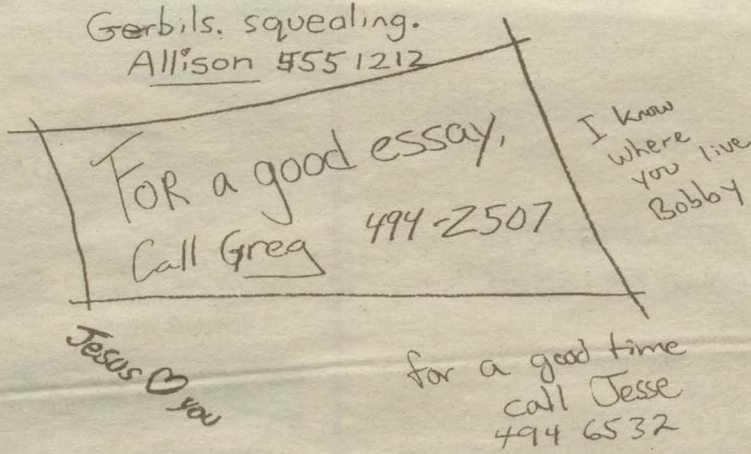 Gerbils. squealing.
Allison 555 1212
FOR a good essay,
Call Greg 494-2507
I know
where
you live
Bobby
Jesus ♡ you
for a good time
call Jesse
494 6532